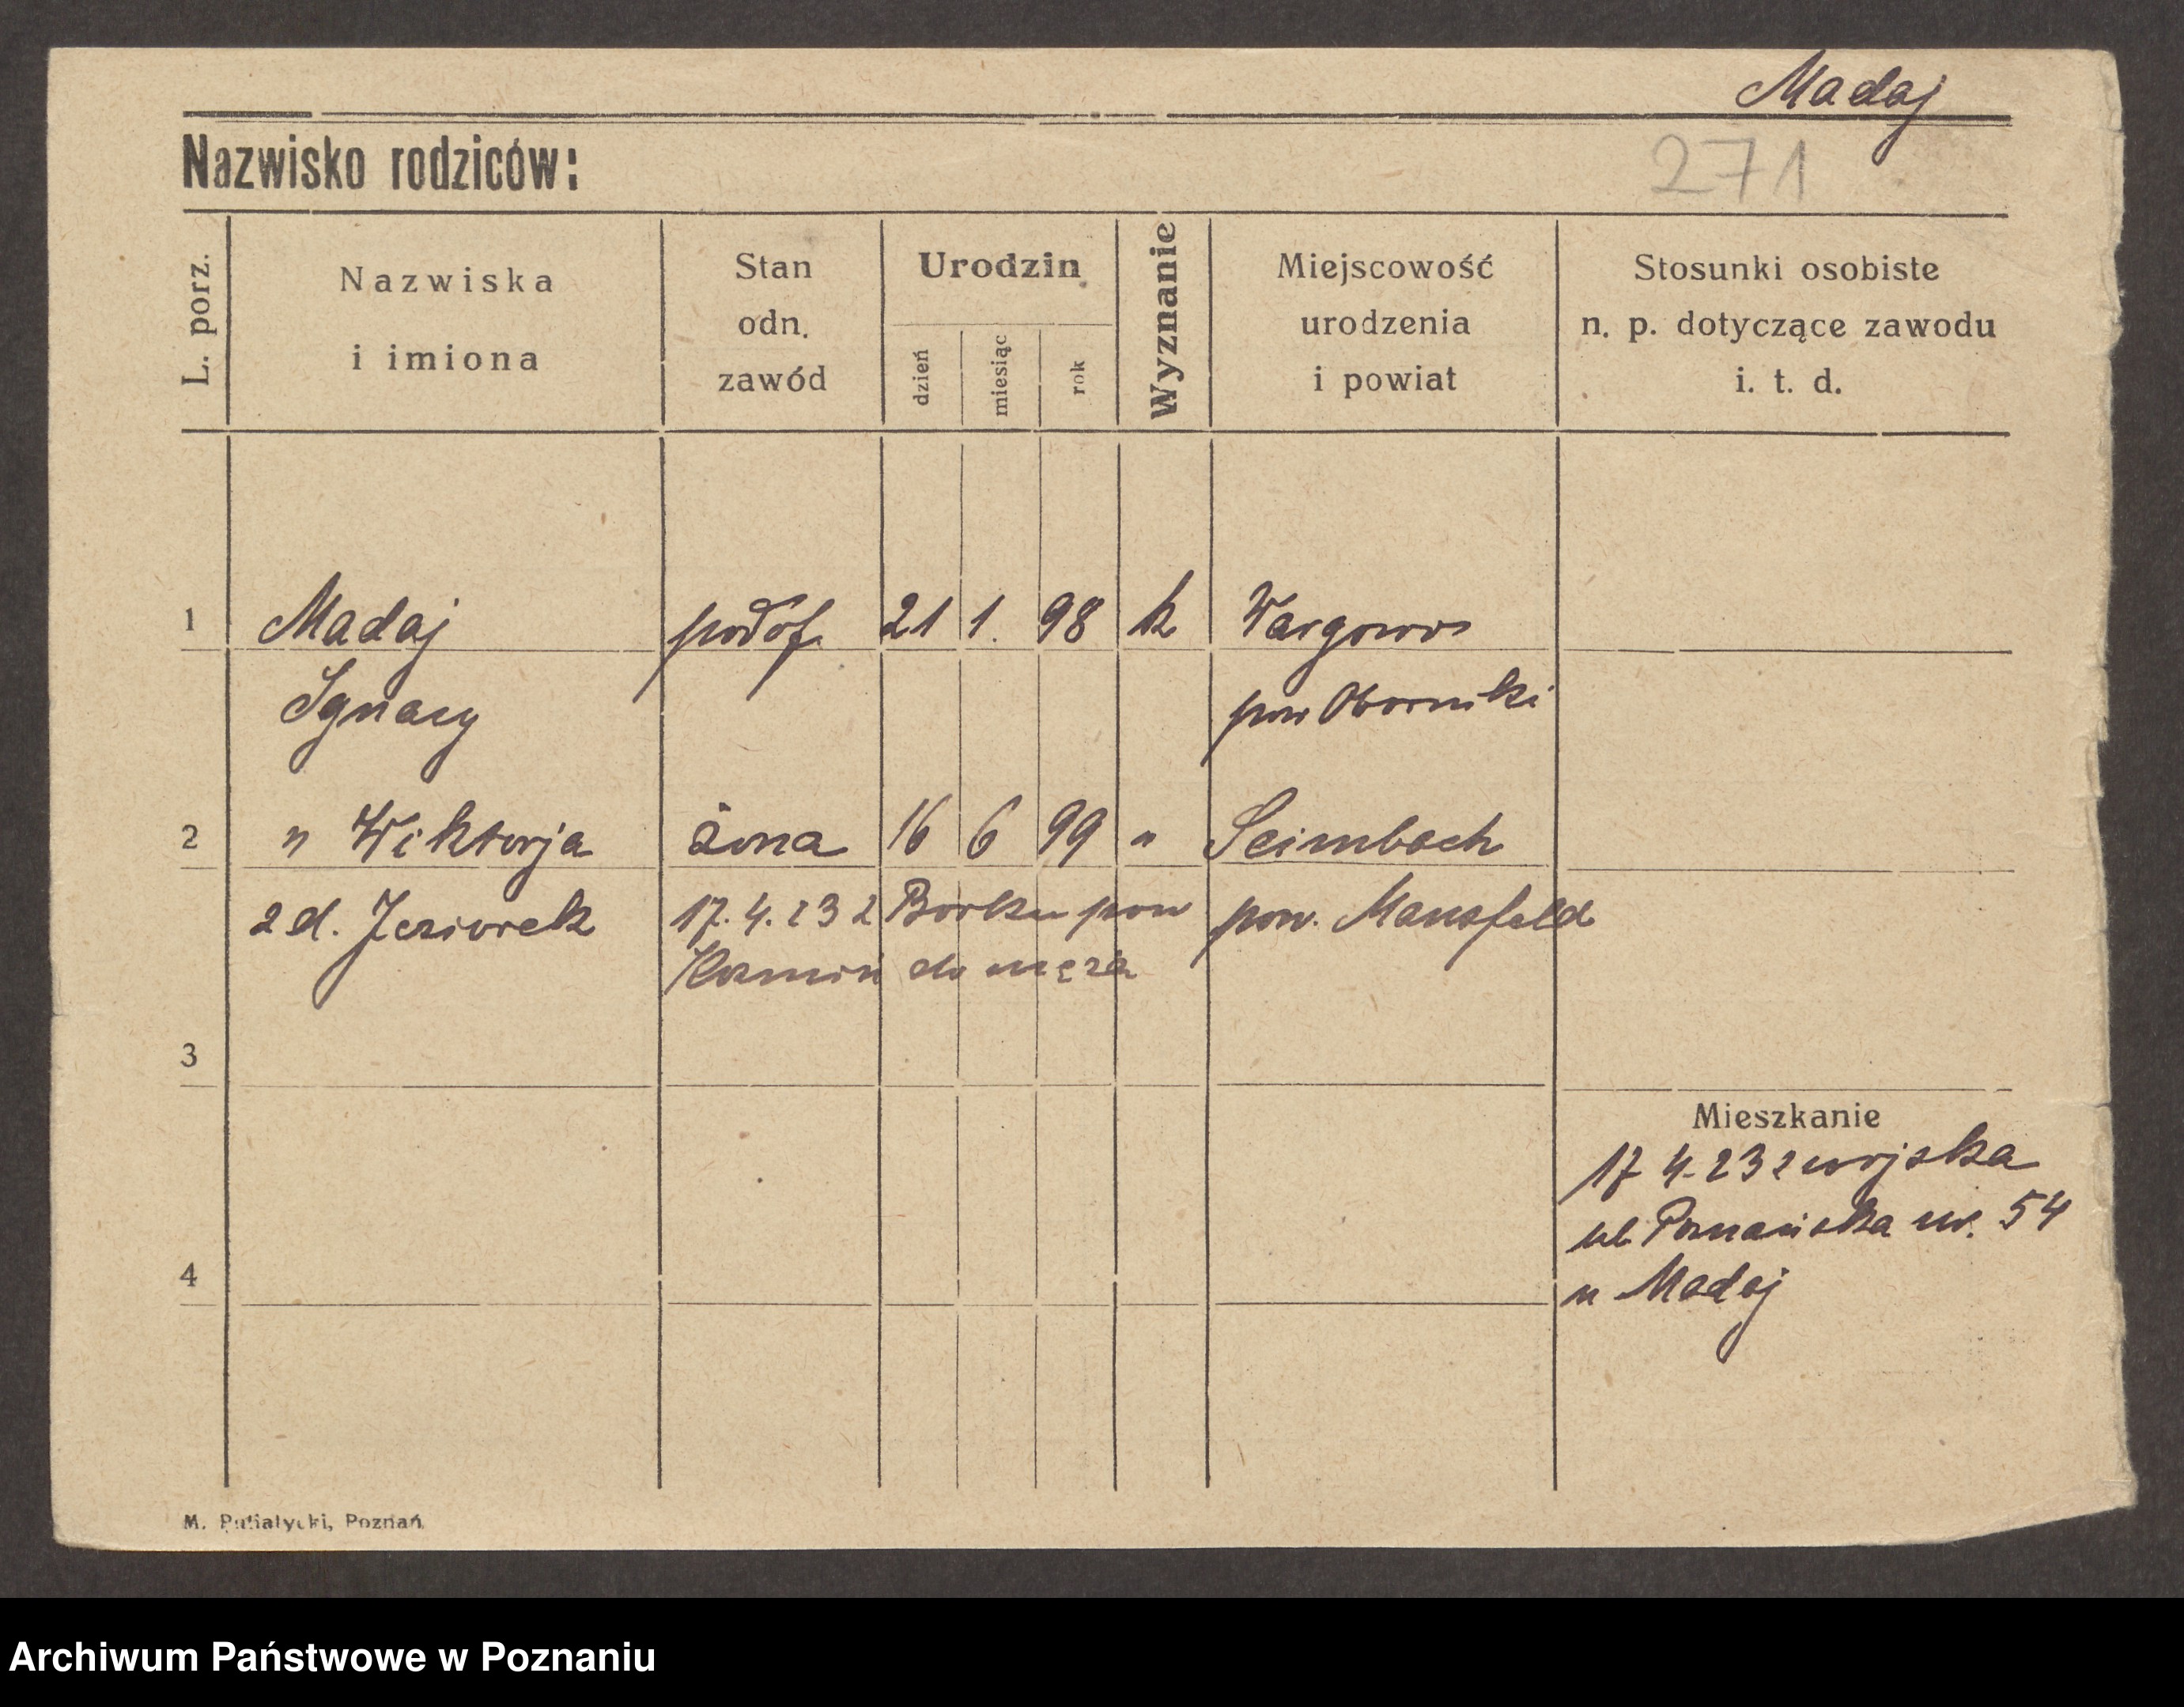 Madaj
Nazwisko rodziców:
271
L. porz.
Nazwiska
i imiona
Stan
odn.
zawód
Urodzin
dzień
miesiąc
rok
Wyznanie
Miejscowość
urodzenia
i powiat
Stosunki osobiste
n. p. dotyczące zawodu
i. t. d.
1 Madaj podof. 21 1. 98 k Wargowo
Ignacy pow Oborniki
2 " Wiktorja żona 16 6 99 " Leimbach
zd. Jeziorek 17.4.23 z Borku pow pow. Mansfeld
Kozmin do męża
3
Mieszkanie
17 4.23 z wojska
ul Poznańska nr. 54
4
u Madaj
M. Putiatycki, Poznań
Archiwum Państwowe w Poznaniu